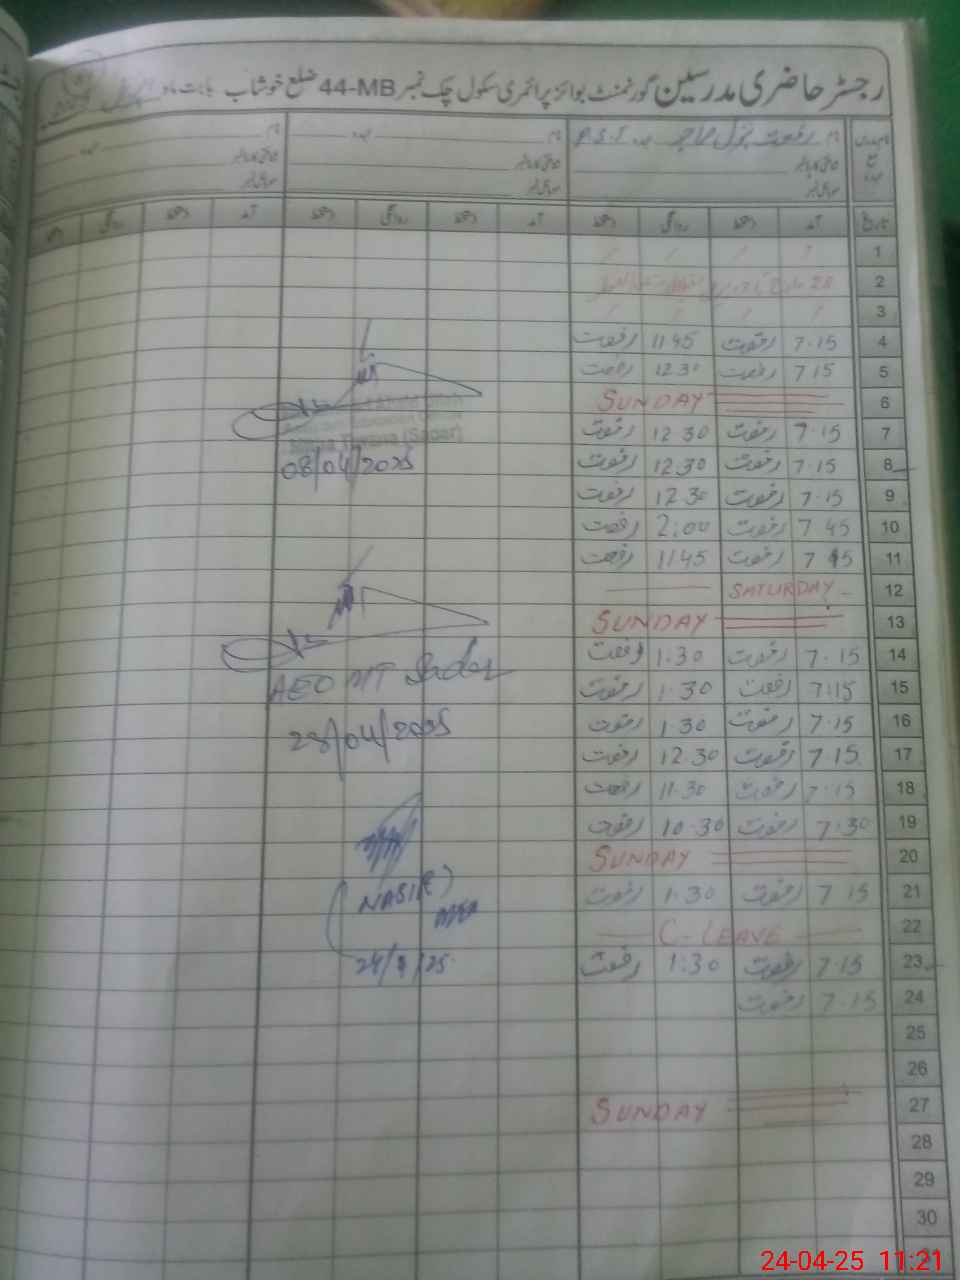 رجسٹر حاضری مدرسین گورنمنٹ بوائز پرائمری سکول چک نمبر 44-MB ضلع خوشاب بابت ماہ
نام رفعت بتول عہدہ P.S.T نام عہدہ نام عہدہ
شناختی کارڈ نمبر شناختی کارڈ نمبر شناختی کارڈ نمبر
موبائل نمبر موبائل نمبر موبائل نمبر
تاریخ آمد دستخط روانگی دستخط آمد دستخط روانگی دستخط آمد دستخط روانگی دستخط
1
2
3
4 7.15 رفعت 11 45 رفعت
5 7 15 رفعت 12 30 رفعت
6 SUNDAY
7 7.15 رفعت 12 30 رفعت
8 7.15 رفعت 12.30 رفعت
9 7.15 رفعت 12 30 رفعت
10 7 45 رفعت 2.00 رفعت
11 7 45 رفعت 11 45 رفعت
12 SATURDAY
13 SUNDAY
14 7.15 رفعت 1.30 رفعت
15 7:15 رفعت 1.30 رفعت
16 7.15 رفعت 1.30 رفعت
17 7.15 رفعت 12.30 رفعت
18 7.15 رفعت 11.30 رفعت
19 7.30 رفعت 10.30 رفعت
20 SUNDAY
21 7 15 رفعت 1.30 رفعت
22 C-LEAVE
23 7.15 رفعت 1:30 رفعت
24 7.15 رفعت
25
26
27 SUNDAY
28
29
30
31
(Sadar)
08/04/2025
AEO MT Sadar
23/04/2025
(NASIR)
MEA
24/4/25
24-04-25 11:21